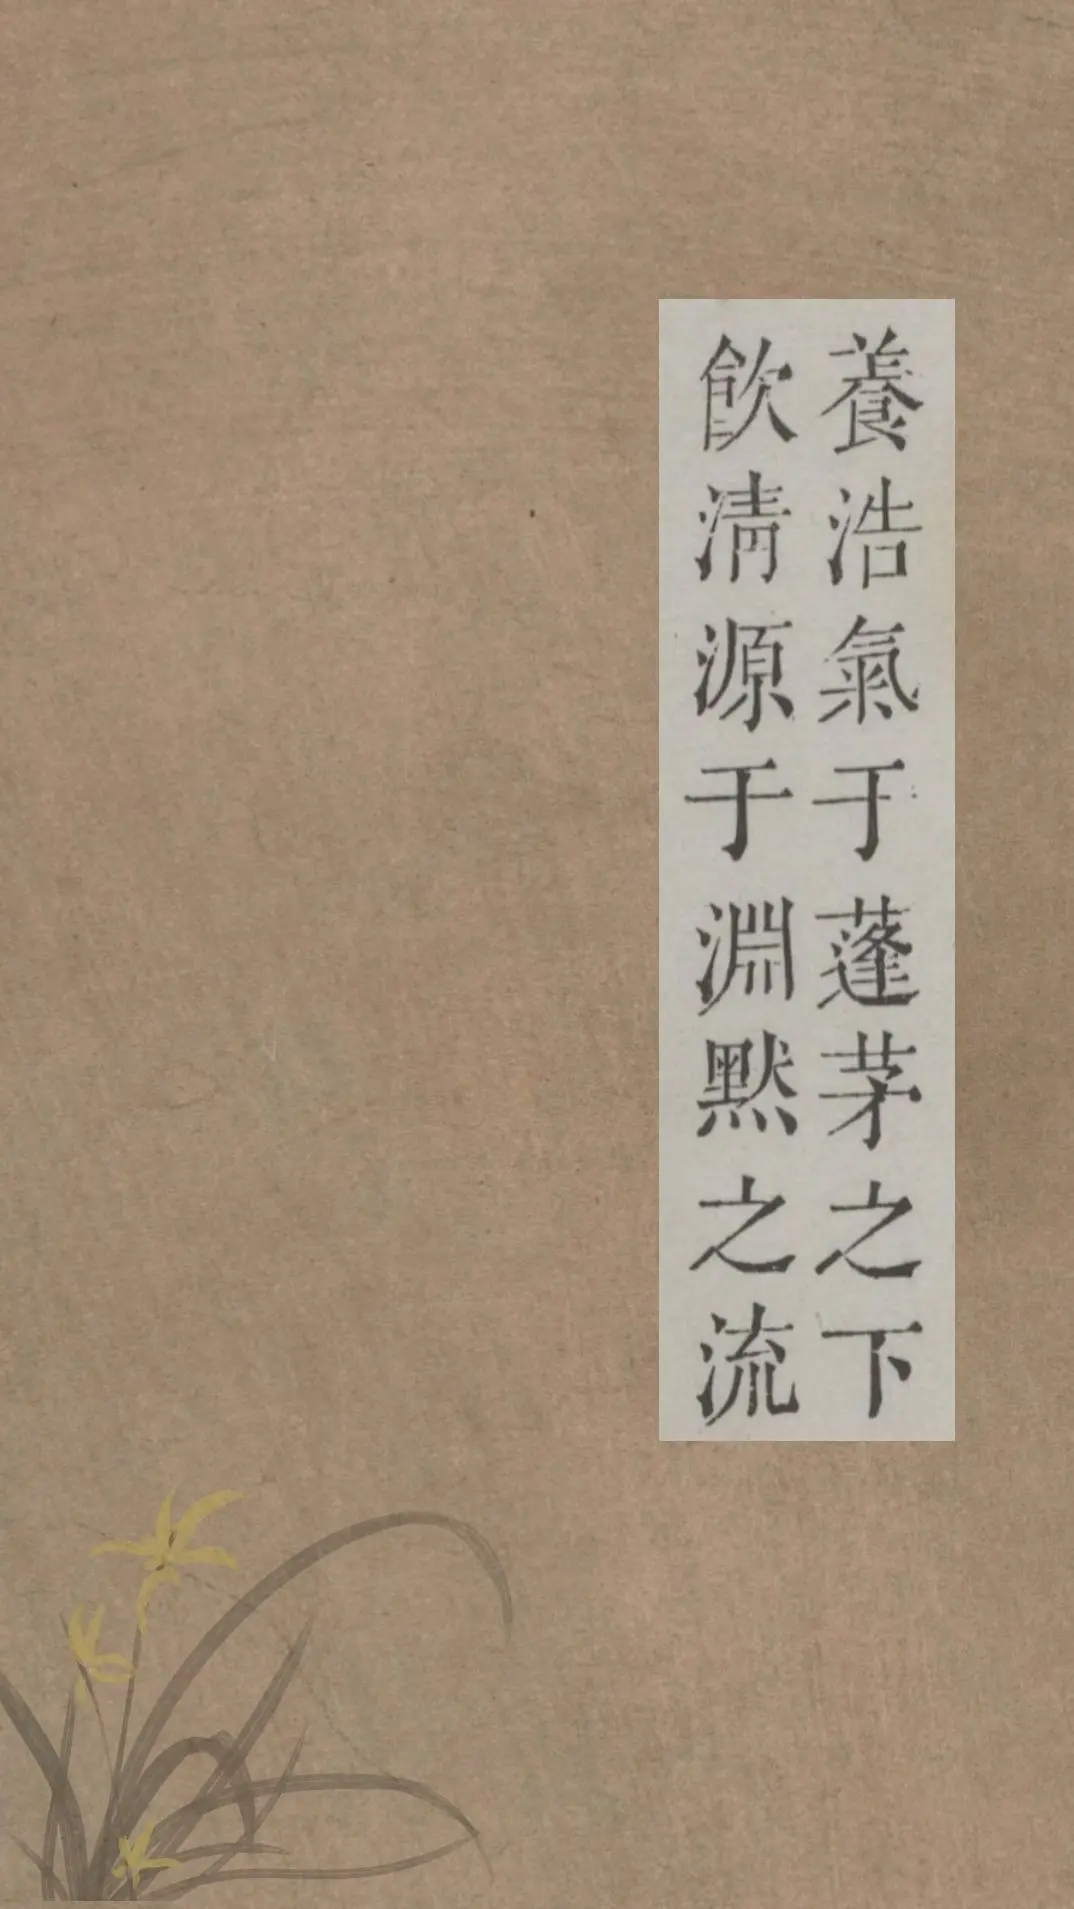 養浩氣于蓬茅之下
飲淸源于淵黙之流